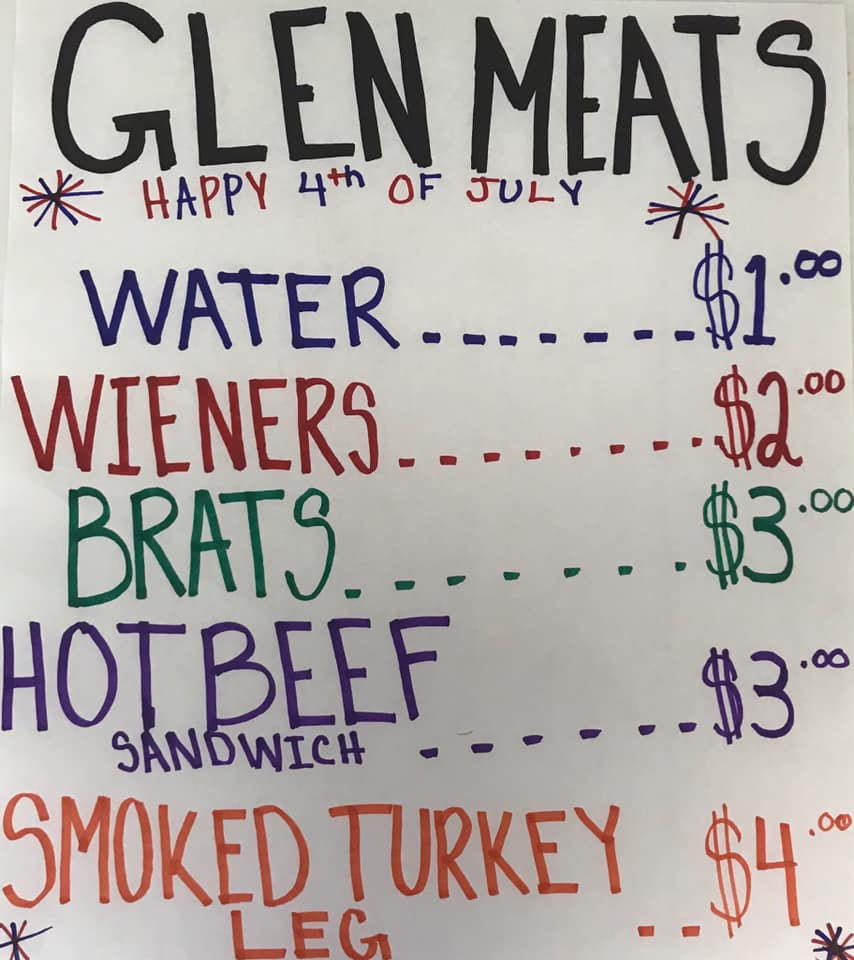 GLEN MEATS
HAPPY 4th OF JULY
WATER.......$1.00
WIENERS........$2.00
BRATS.......$3.00
HOT BEEF
SANDWICH ......$3.00
SMOKED TURKEY
LEG ..$4.00